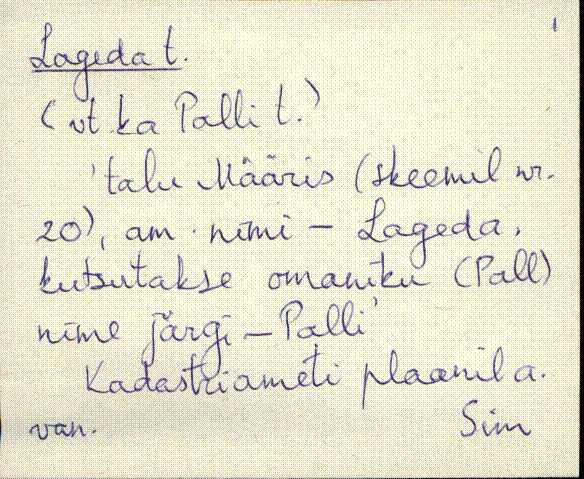 1
Lageda t.
(vt. ka Palli t.)
'talu Määris (skeemil nr.
20), am. nimi - Lageda,
kutsutakse omaniku (Pall)
nime järgi - Palli'
Kadastriameti plaanil a.
van. Sim